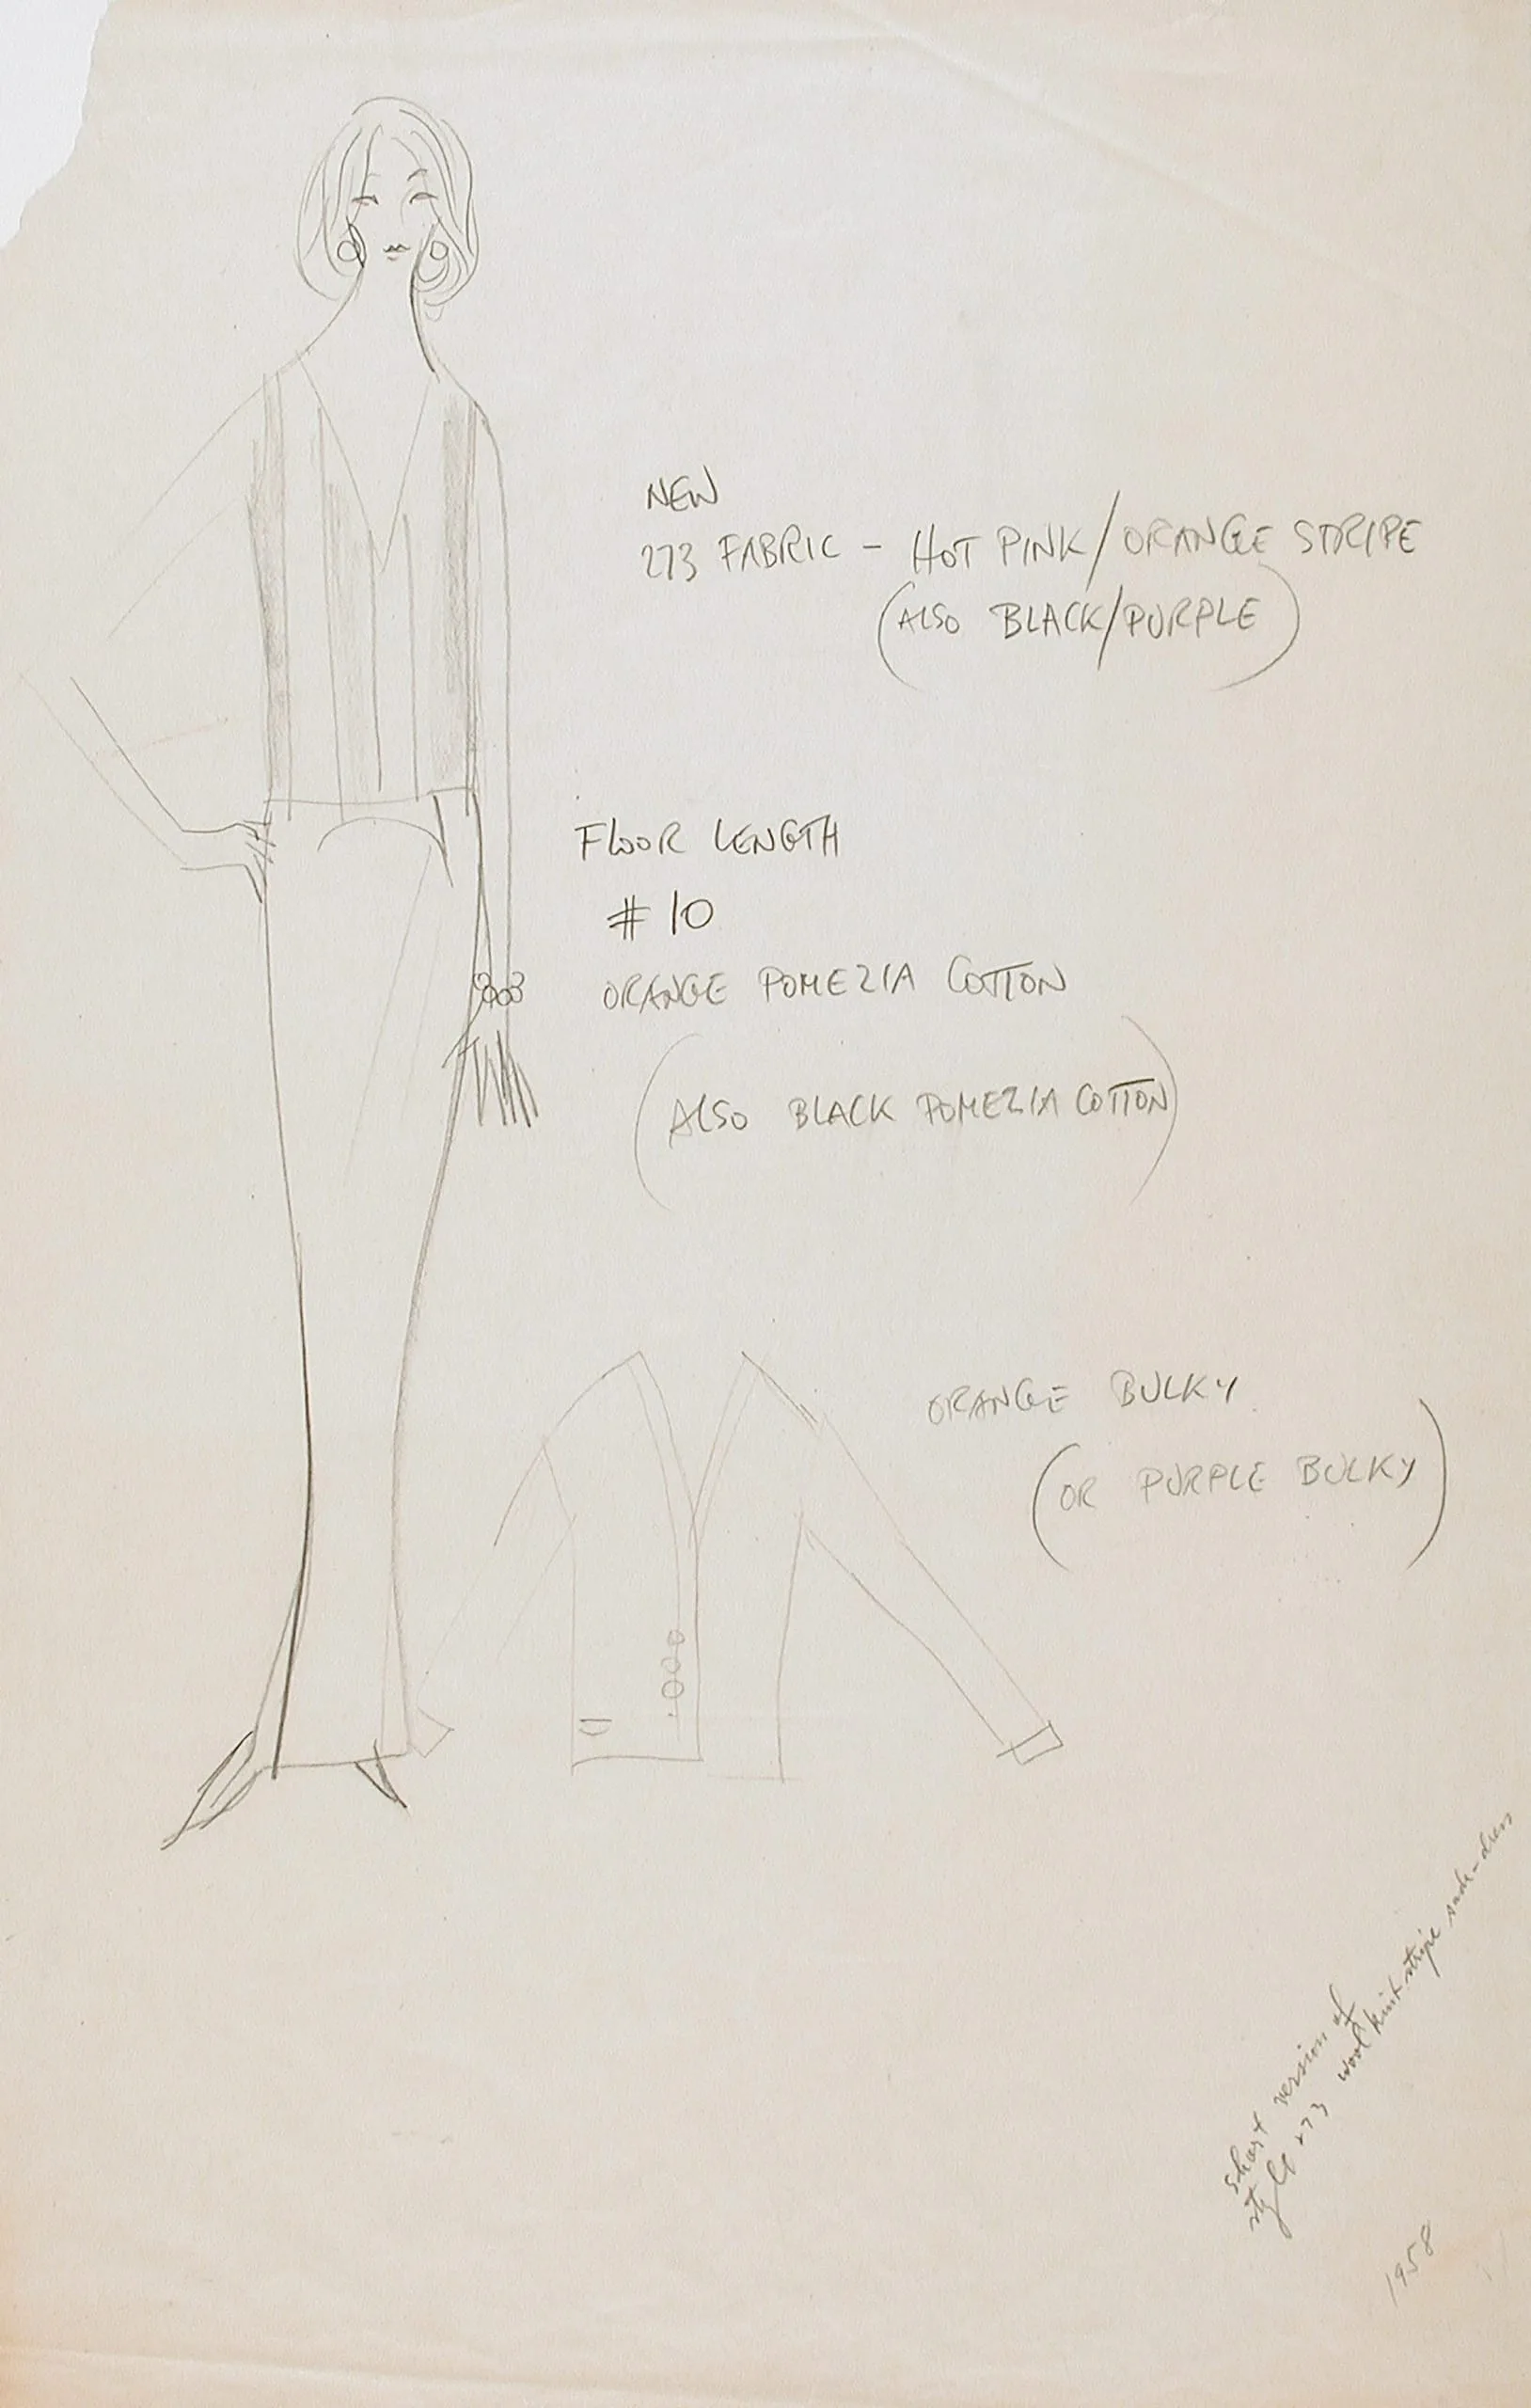 NEW
273 FABRIC – HOT PINK/ORANGE STRIPE
(ALSO BLACK/PURPLE)
FLOOR LENGTH
# 10
ORANGE POMEZIA COTTON
(ALSO BLACK POMEZIA COTTON)
ORANGE BULKY
(OR PURPLE BULKY)
short version of
style 273 wool knit stripe dress
1958